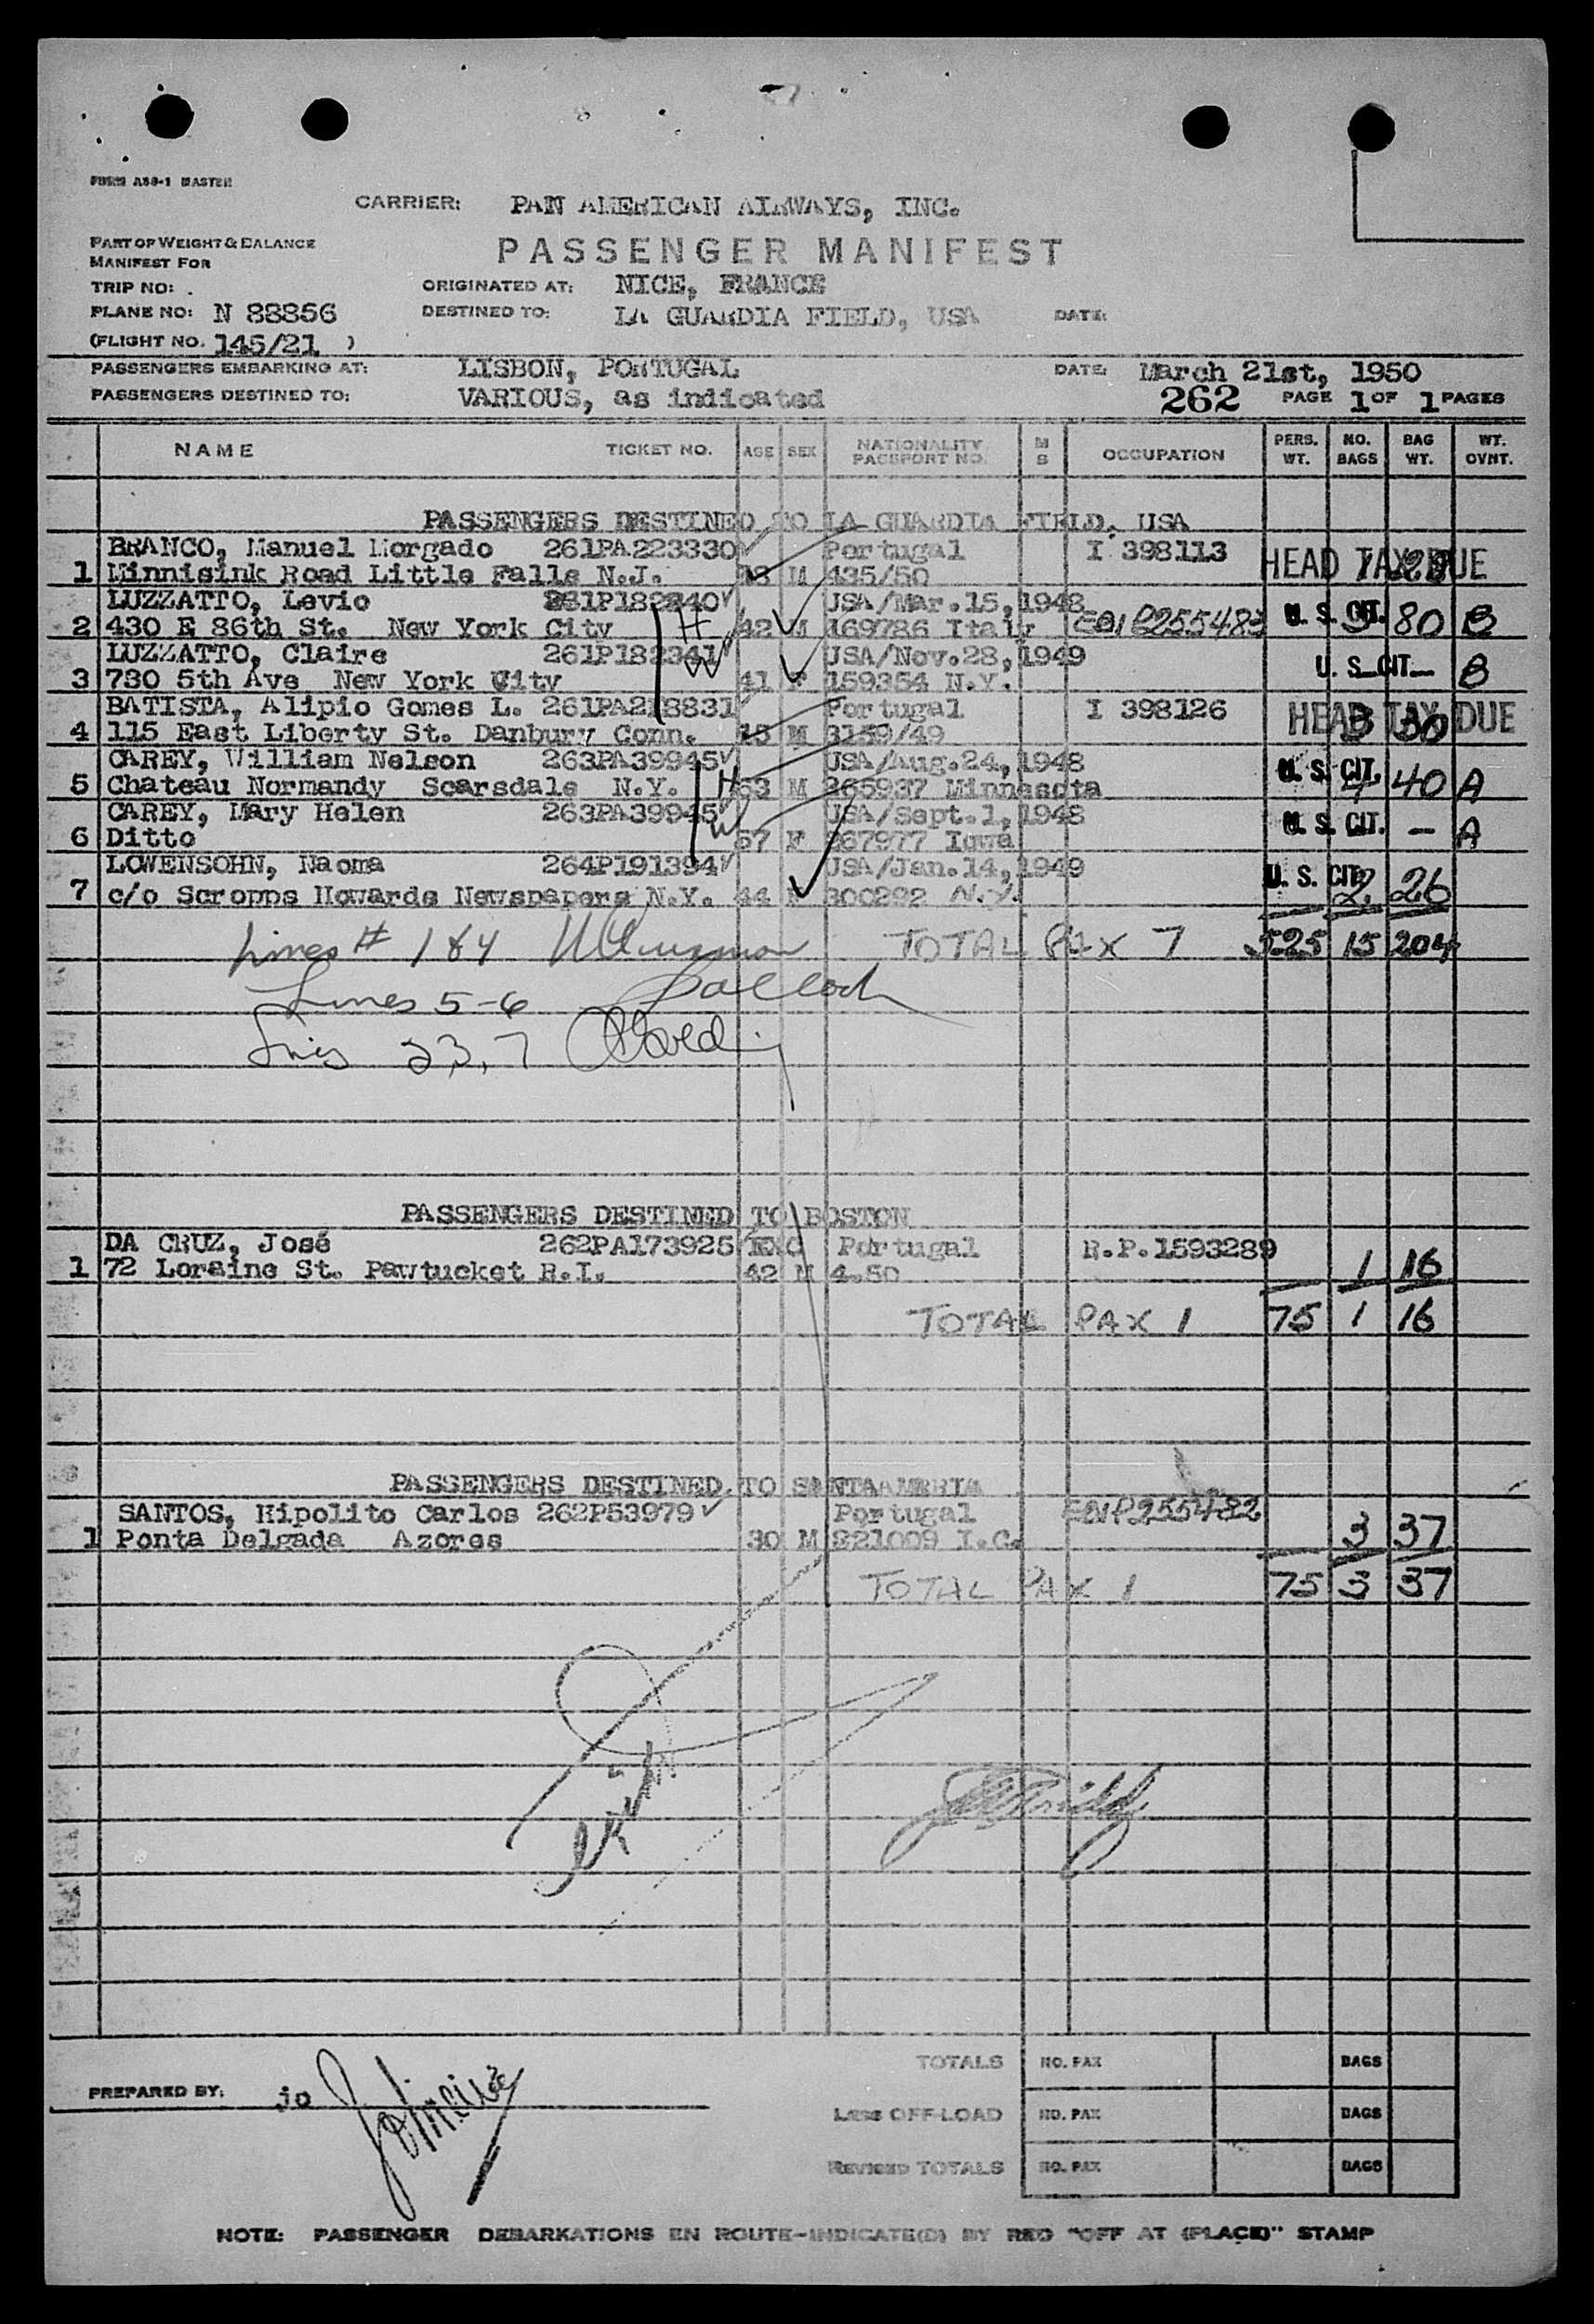 FORM A50-1 MASTER
CARRIER: PAN AMERICAN AIRWAYS, INC.
PART OF WEIGHT & BALANCE
MANIFEST FOR
PASSENGER MANIFEST
TRIP NO: ORIGINATED AT: NICE, FRANCE
PLANE NO: N 88856 DESTINED TO: LA GUARDIA FIELD, USA DATE:
(FLIGHT NO. 145/21 )
PASSENGERS EMBARKING AT: LISBON, PORTUGAL DATE: March 21st, 1950
PASSENGERS DESTINED TO: VARIOUS, as indicated 262 PAGE 1 OF 1 PAGES
NAME TICKET NO. AGE SEX NATIONALITY PASSPORT NO. M S OCCUPATION PERS. WT. NO. BAGS BAG WT. WT. OVNT.
PASSENGERS DESTINED TO LA GUARDIA FIELD, USA
BRANCO, Manuel Morgado 261PA223330 Portugal I 398113 HEAD TAX DUE
1 Minnisink Road Little Falls N.J. M 435/50
LUZZATTO, Levio 182340 USA/Mar.15,1948
2 430 E 86th St. New York City H 42 M 169786 Italy P255483 U. S. CIT. 80 B
LUZZATTO, Claire 261P182341 USA/Nov.28,1949
3 780 5th Ave New York City W 41 F 159354 N.Y. U. S. CIT. — B
BATISTA, Alipio Gomes L. 261PA218831 Portugal I 398126 HEAD TAX DUE
4 115 East Liberty St. Danbury Conn. M 3159/49 3 30
CAREY, William Nelson 263PA39945 USA/Aug.24,1948
5 Chateau Normandy Scarsdale N.Y. H 53 M 265937 Minnesota U. S. CIT. 40 A
CAREY, Mary Helen 263PA39945 USA/Sept.1,1948
6 Ditto W 57 F 267977 Iowa U. S. CIT. — A
LOWENSOHN, Naoma 264P191394 USA/Jan.14,1949
7 c/o Scropps Howards Newspapers N.Y. 44 F 300292 N.Y. U. S. CIT. 2 26
Lines # 1 & 4 TOTAL PAX 7 525 15 204
Lines 5-6
Lines 2,3,7
PASSENGERS DESTINED TO BOSTON
DA CRUZ, José 262PA173925 EXC Portugal R.P.1593289
1 72 Loraine St. Pawtucket R.I. 42 M 4.50 1 16
TOTAL PAX 1 75 1 16
PASSENGERS DESTINED TO SANTAMARIA
SANTOS, Hipolito Carlos 262P53979 Portugal P255482
1 Ponta Delgada Azores 30 M 221009 I.C. 3 37
TOTAL PAX 1 75 3 37
TOTALS NO. PAX BAGS
PREPARED BY: jo
Less OFF-LOAD NO. PAX BAGS
Revised TOTALS NO. PAX BAGS
NOTE: PASSENGER DEBARKATIONS EN ROUTE-INDICATE(D) BY RED "OFF AT (PLACE)" STAMP